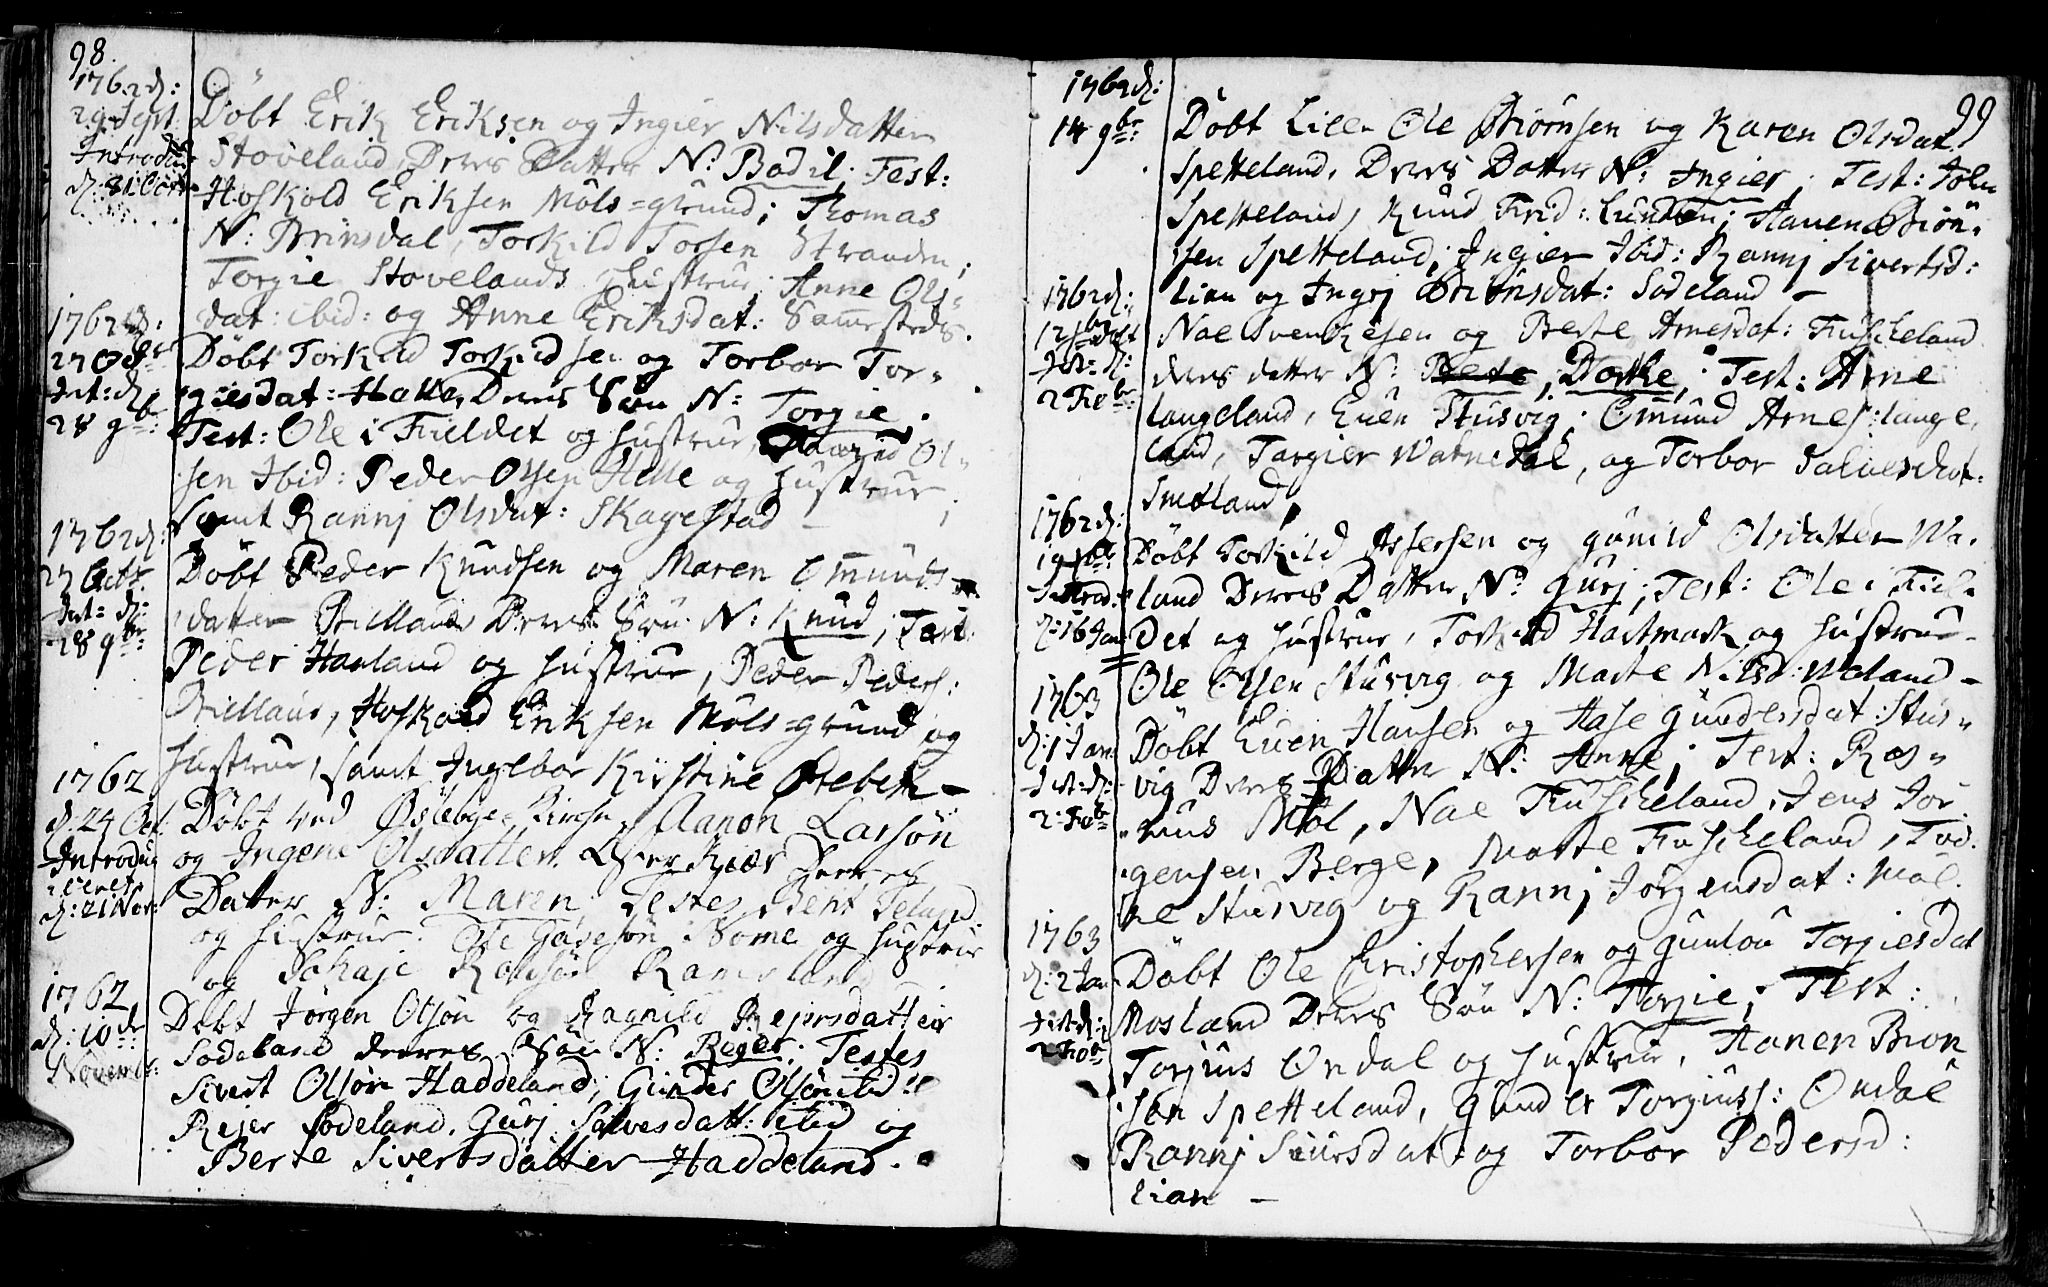 98.
1762 d:
29 Sept.
Introdu:
d: 31 Octr
Döbt Erik Eriksen og Ingier Nilsdatter
Stöveland, Deres Datter N: Bodil. Test:
Hoskold Eriksen Möls=grund; Thomas
N: Brinsdal, Torkild Torsen Stranden;
Torgie Stovelands Hustrue Anne Ols=
dat: ibid: og Anne Eriksdat: Sammesteds.
1762 d:
27 Octr
Int: d:
28 9br:
Döbt Torkild Torkildsen og Torbor Tor=
giesdat: Halle, Deres Sön N: Torgie.
Test: Ole i Fieldet og Hustrue, Ol=
sen Ibid: Peder Olsen Helle og Hustrue;
samt Rannj Olsdat: Skagestad
1762 d:
27 Octr
Int: d:
28 9br
Döbt Peder Knudsen og Maren Omunds=
datter Bielland Deres Sön N: Knud; Test:
Peder Hauland og Hustrue, Peder Peders:
Biellaus, Hoskold Eriksen Möls=grund og
Hustrue, samt Ingebor Kirstine
1762
d: 24 Oct
Introdug
d: 21 Nov:
Döbt ved Öslebye Kirche Aanon Larsön
og Ingeni Olsdatter Deres
Datter N: Maren Testes Bent
og Hustrue. Ole Giöresön Nome og Hustrue
og
1762
d: 10de
Novemb:
Döbt Jörgen Olsön og Ragnild Rejersdatter
Södeland deres Sön N: Reger; Testes
Sivert Olsön Haddeland, Gunder Olsön ibid:
Rejer Södeland. Gurj Salvesdatt: ibid og
Berte Sivertsdatter Haddeland.
99
1762 d:
14 9br:
Döbt Lille Ole Biörnsen og Karen Olsdat:
Spetteland, Deres Datter N: Ingier; Test: John
Spetteland, Knud Frid: Lunden; Haaven Biörn=
sen Spetteland; Ingier Ibid: Rannj Sivertsd:
Lian og Ingrj Biönsdat: Södeland
1762 d:
Int: d:
2 Febr:
Nael Svenkesen og Berte Arnesdat: Fuskeland
deres datter N: Berte, Dorthe; Test: Arne
Langeland, Even Stusvig. Omund Arnes: Lange
land, Targier Watnedal, og Torbor Salvesdat:
Smöland,
1762 d:
19 xbr:
Introd:
d: 16 Jan
Döbt Torkild Assersen og Gunild Olsdatter We=
land Deres Datter N: Gurj; Test: Ole i Fiel=
det og Hustrue, Torkild Hartmark og Hustrue
Ole Olsen Stusvig og Marte Nilsd: Weland
1763
d: 1 Jan
Int: d:
2: Febr
Döbt Even Hansen og Aase Gundersdat: Stus=
vig Deres Datter N: Anne; Test: Ras=
mus Möl, Nael Fuskeland, Jens Jör=
gensen Berge, Marte Fuskeland, Tod=
ne Stusvig og Rannj Jörgensdat: Möl.
1763
d: 2 Jan
Int: d:
2 Febr
Döbt Ole Christophersen og Gunlou Torgiesdat
Mosland Deres Sön N: Torgie; Test:
Torjius Öndal og Hustrue, Haaven Biön
sen Spetteland, Gunder Torgiuss: Öndal
Rannj Siursdat: og Torbor Pedersd:
Lian